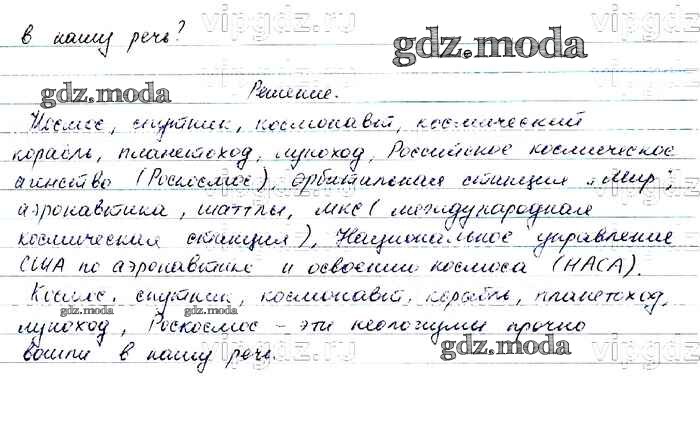 в нашу речь?
gdz.moda
vipgdz.ru
Решение.
gdz.moda
Космос, спутник, космонавт, космический
корабль, планетоход, луноход, Российское космическое
агенство (Роскосмос), орбитальная станция „Мир",
аэронавтика, шаттлы, МКС (международная
космическая станция), Национальное управление
США по аэронавтике и освоению космоса (НАСА).
Космос, спутник, космонавт, корабль, планетоход,
луноход, Роскосмос – эти неологизмы прочно
gdz.moda
gdz.moda
вошли в нашу речь.
gdz.moda
vipgdz.ru